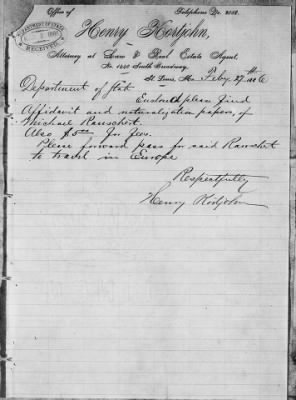 Office of
Telephone No. 3032.
Henry Kortjohn,
Attorney at Law & Real Estate Agent,
South Broadway.
DEPARTMENT OF STATE
RECEIVED
St. Louis, Mo. Feby 9th 1886
Department of Stat
Enclosed please find
Affidavit and naturalization papers, of
Michael Rauschert.
Also $5.00 for fees.
Please forward pass for said Rauschert
to travel in Europe
Respectfully
Henry Kortjohn